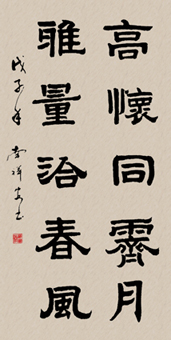 高懷同霽月
雅量洽春風
戊子年